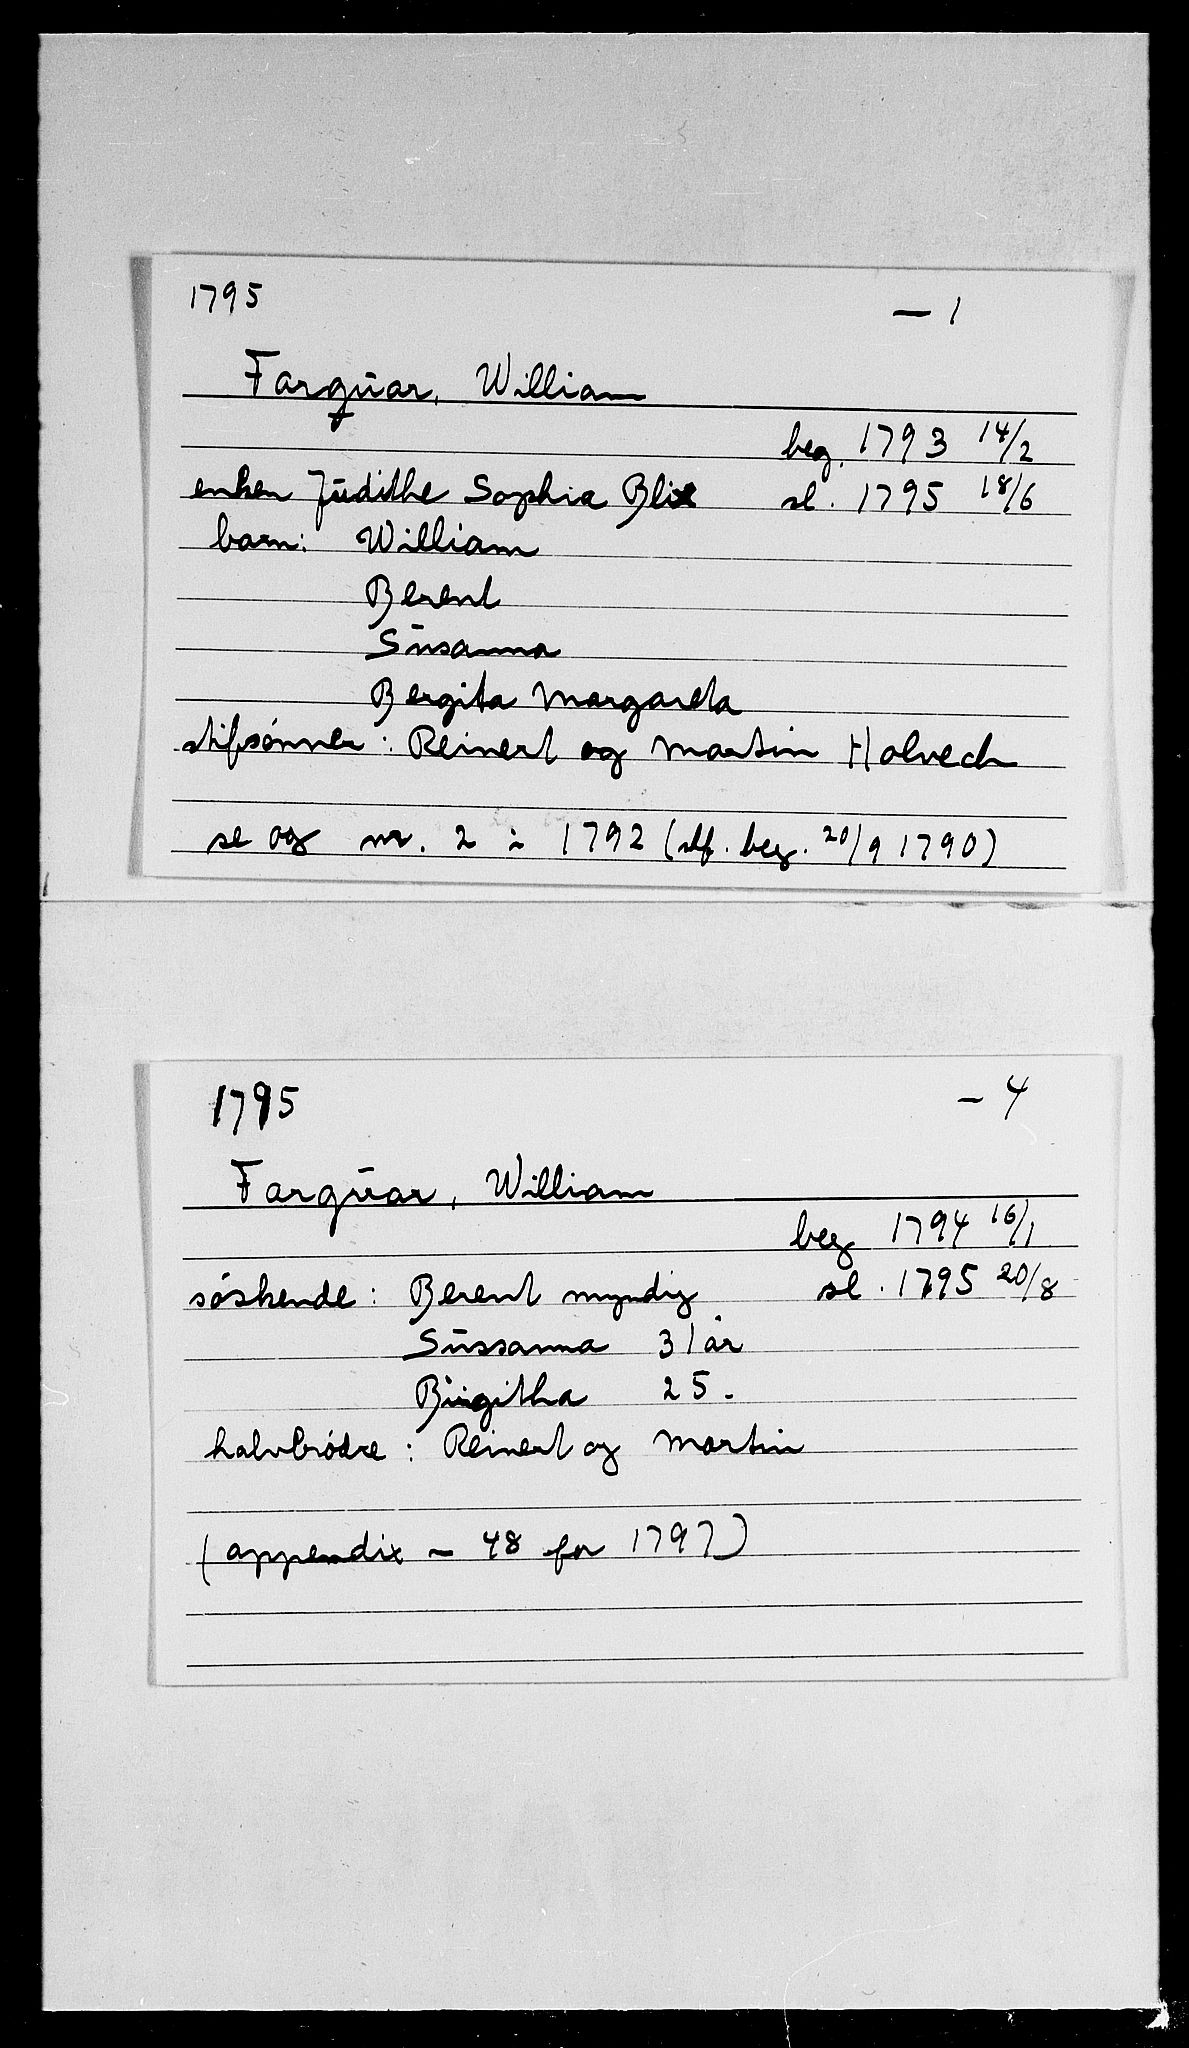 1795 — 1
Fargūar, William
beg. 1793 14/2
enken Jūdithe Sophia Blix sl. 1795 18/6
barn: William
Berent
Sūsanna
Bergita Margareta
stifsønner: Reinert og Martin Holveck
se og nr. 2 i 1792 (slf. beg. 20/9 1790)
1795 – 4
Fargūar, William
beg 1794 16/1
søskende: Berent myndig sl. 1795 20/8
Sūssanna 31 år
Birgitha 25 -
halvbrødre: Reinert og Martin
(appendix – 48 for 1797)